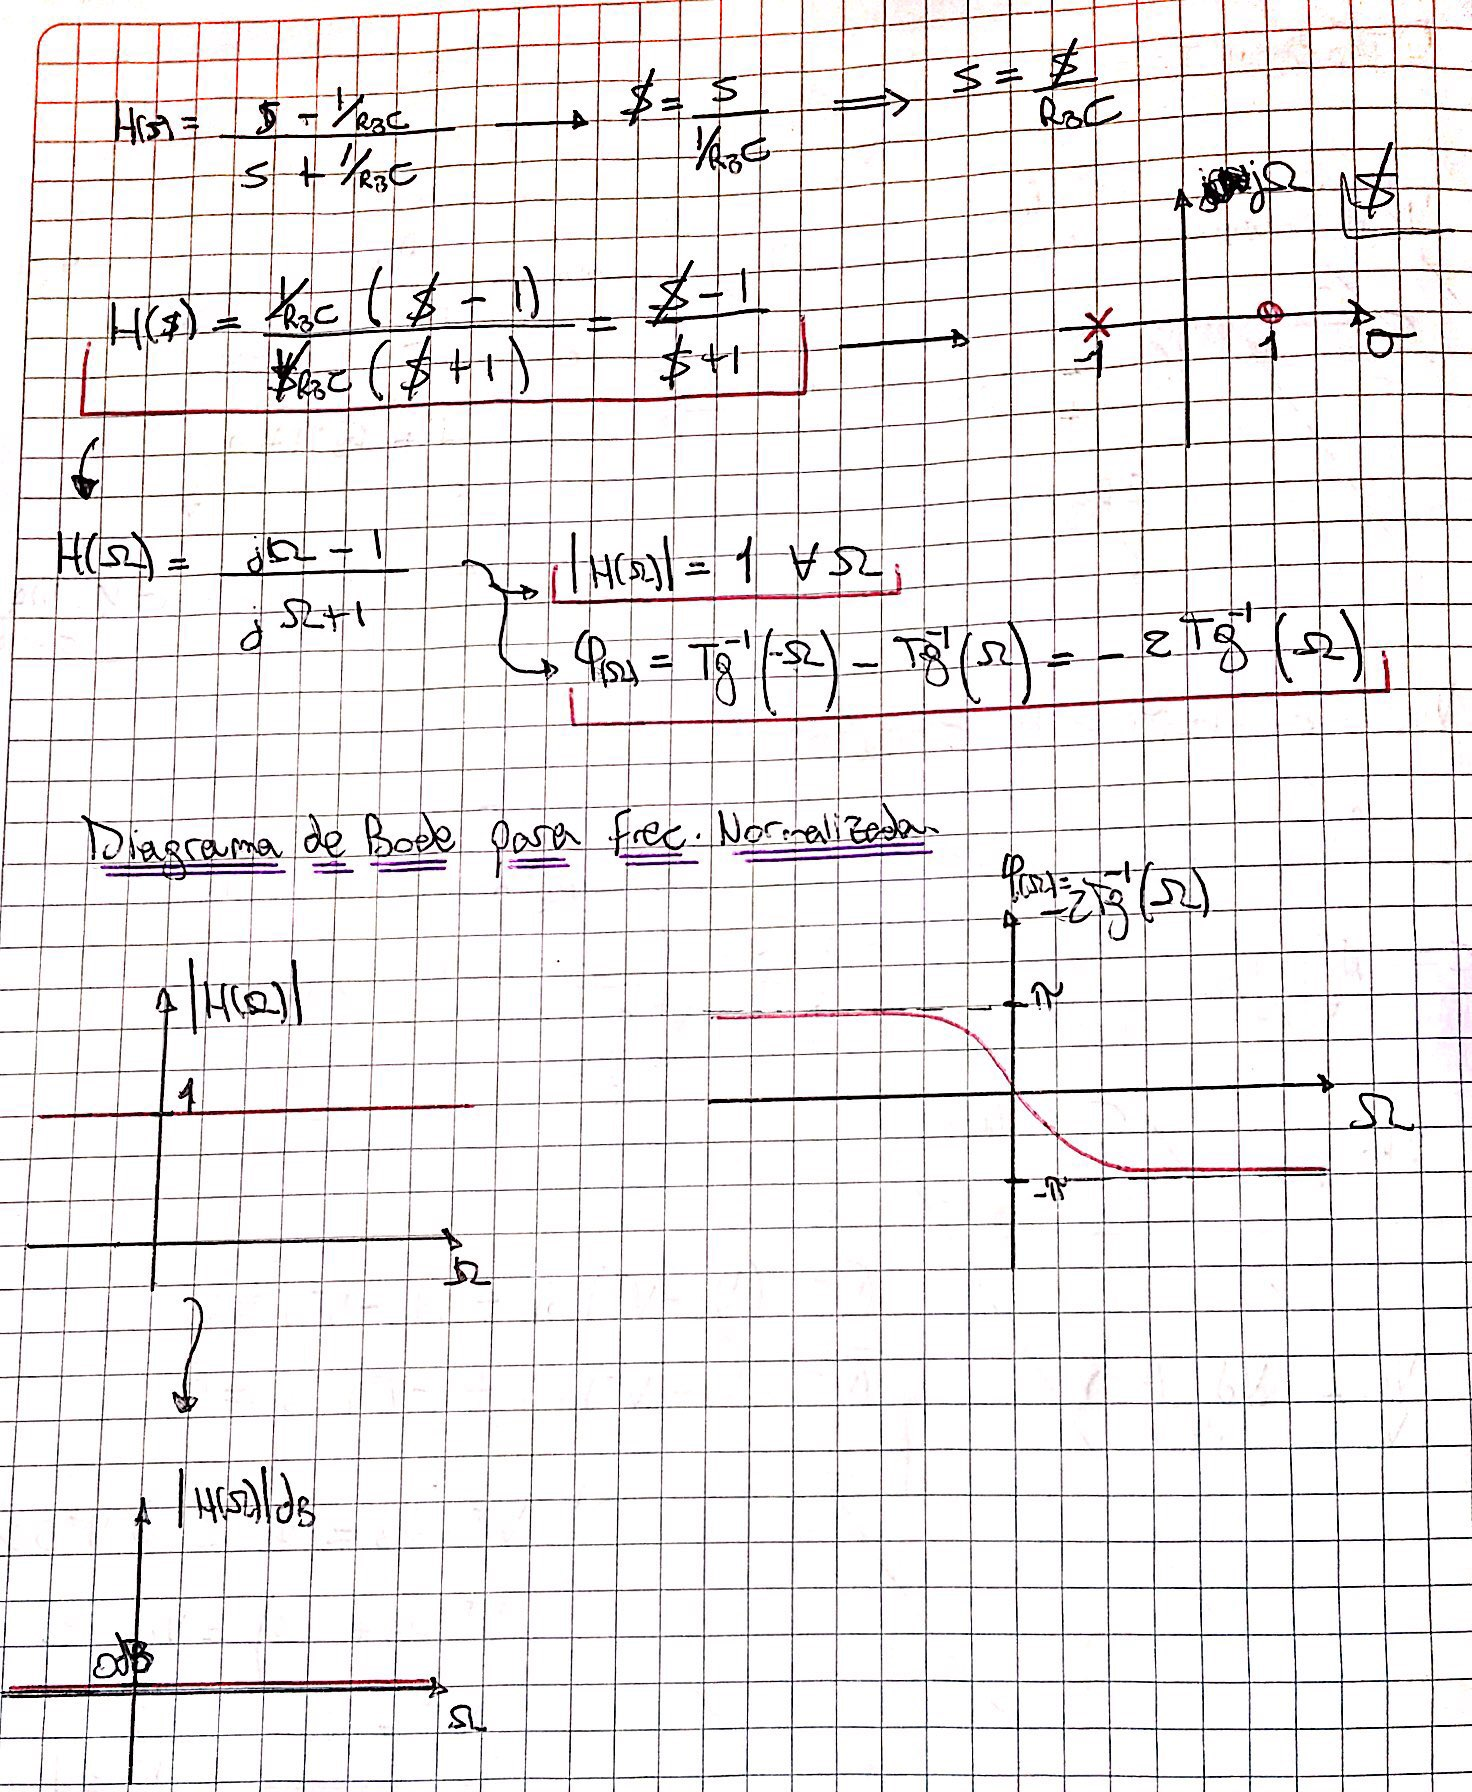 H(s) = (s - 1/R₃C) / (s + 1/R₃C) → $ = s / (1/R₃C) ⟹ s = $ / R₃C
jΩ $
H($) = 1/R₃C ($ - 1) / 1/R₃C ($ + 1) = ($ - 1) / ($ + 1) →
-1 1 σ
H(Ω) = (jΩ - 1) / (jΩ + 1)
|H(Ω)| = 1 ∀ Ω
φ(Ω) = Tg⁻¹(-Ω) - Tg⁻¹(Ω) = - 2 Tg⁻¹(Ω)
Diagrama de Bode para frec. Normalizada.
φ(Ω) = -2Tg⁻¹(Ω)
|H(Ω)|
π
1
Ω
-π
Ω
|H(Ω)|dB
0dB
Ω